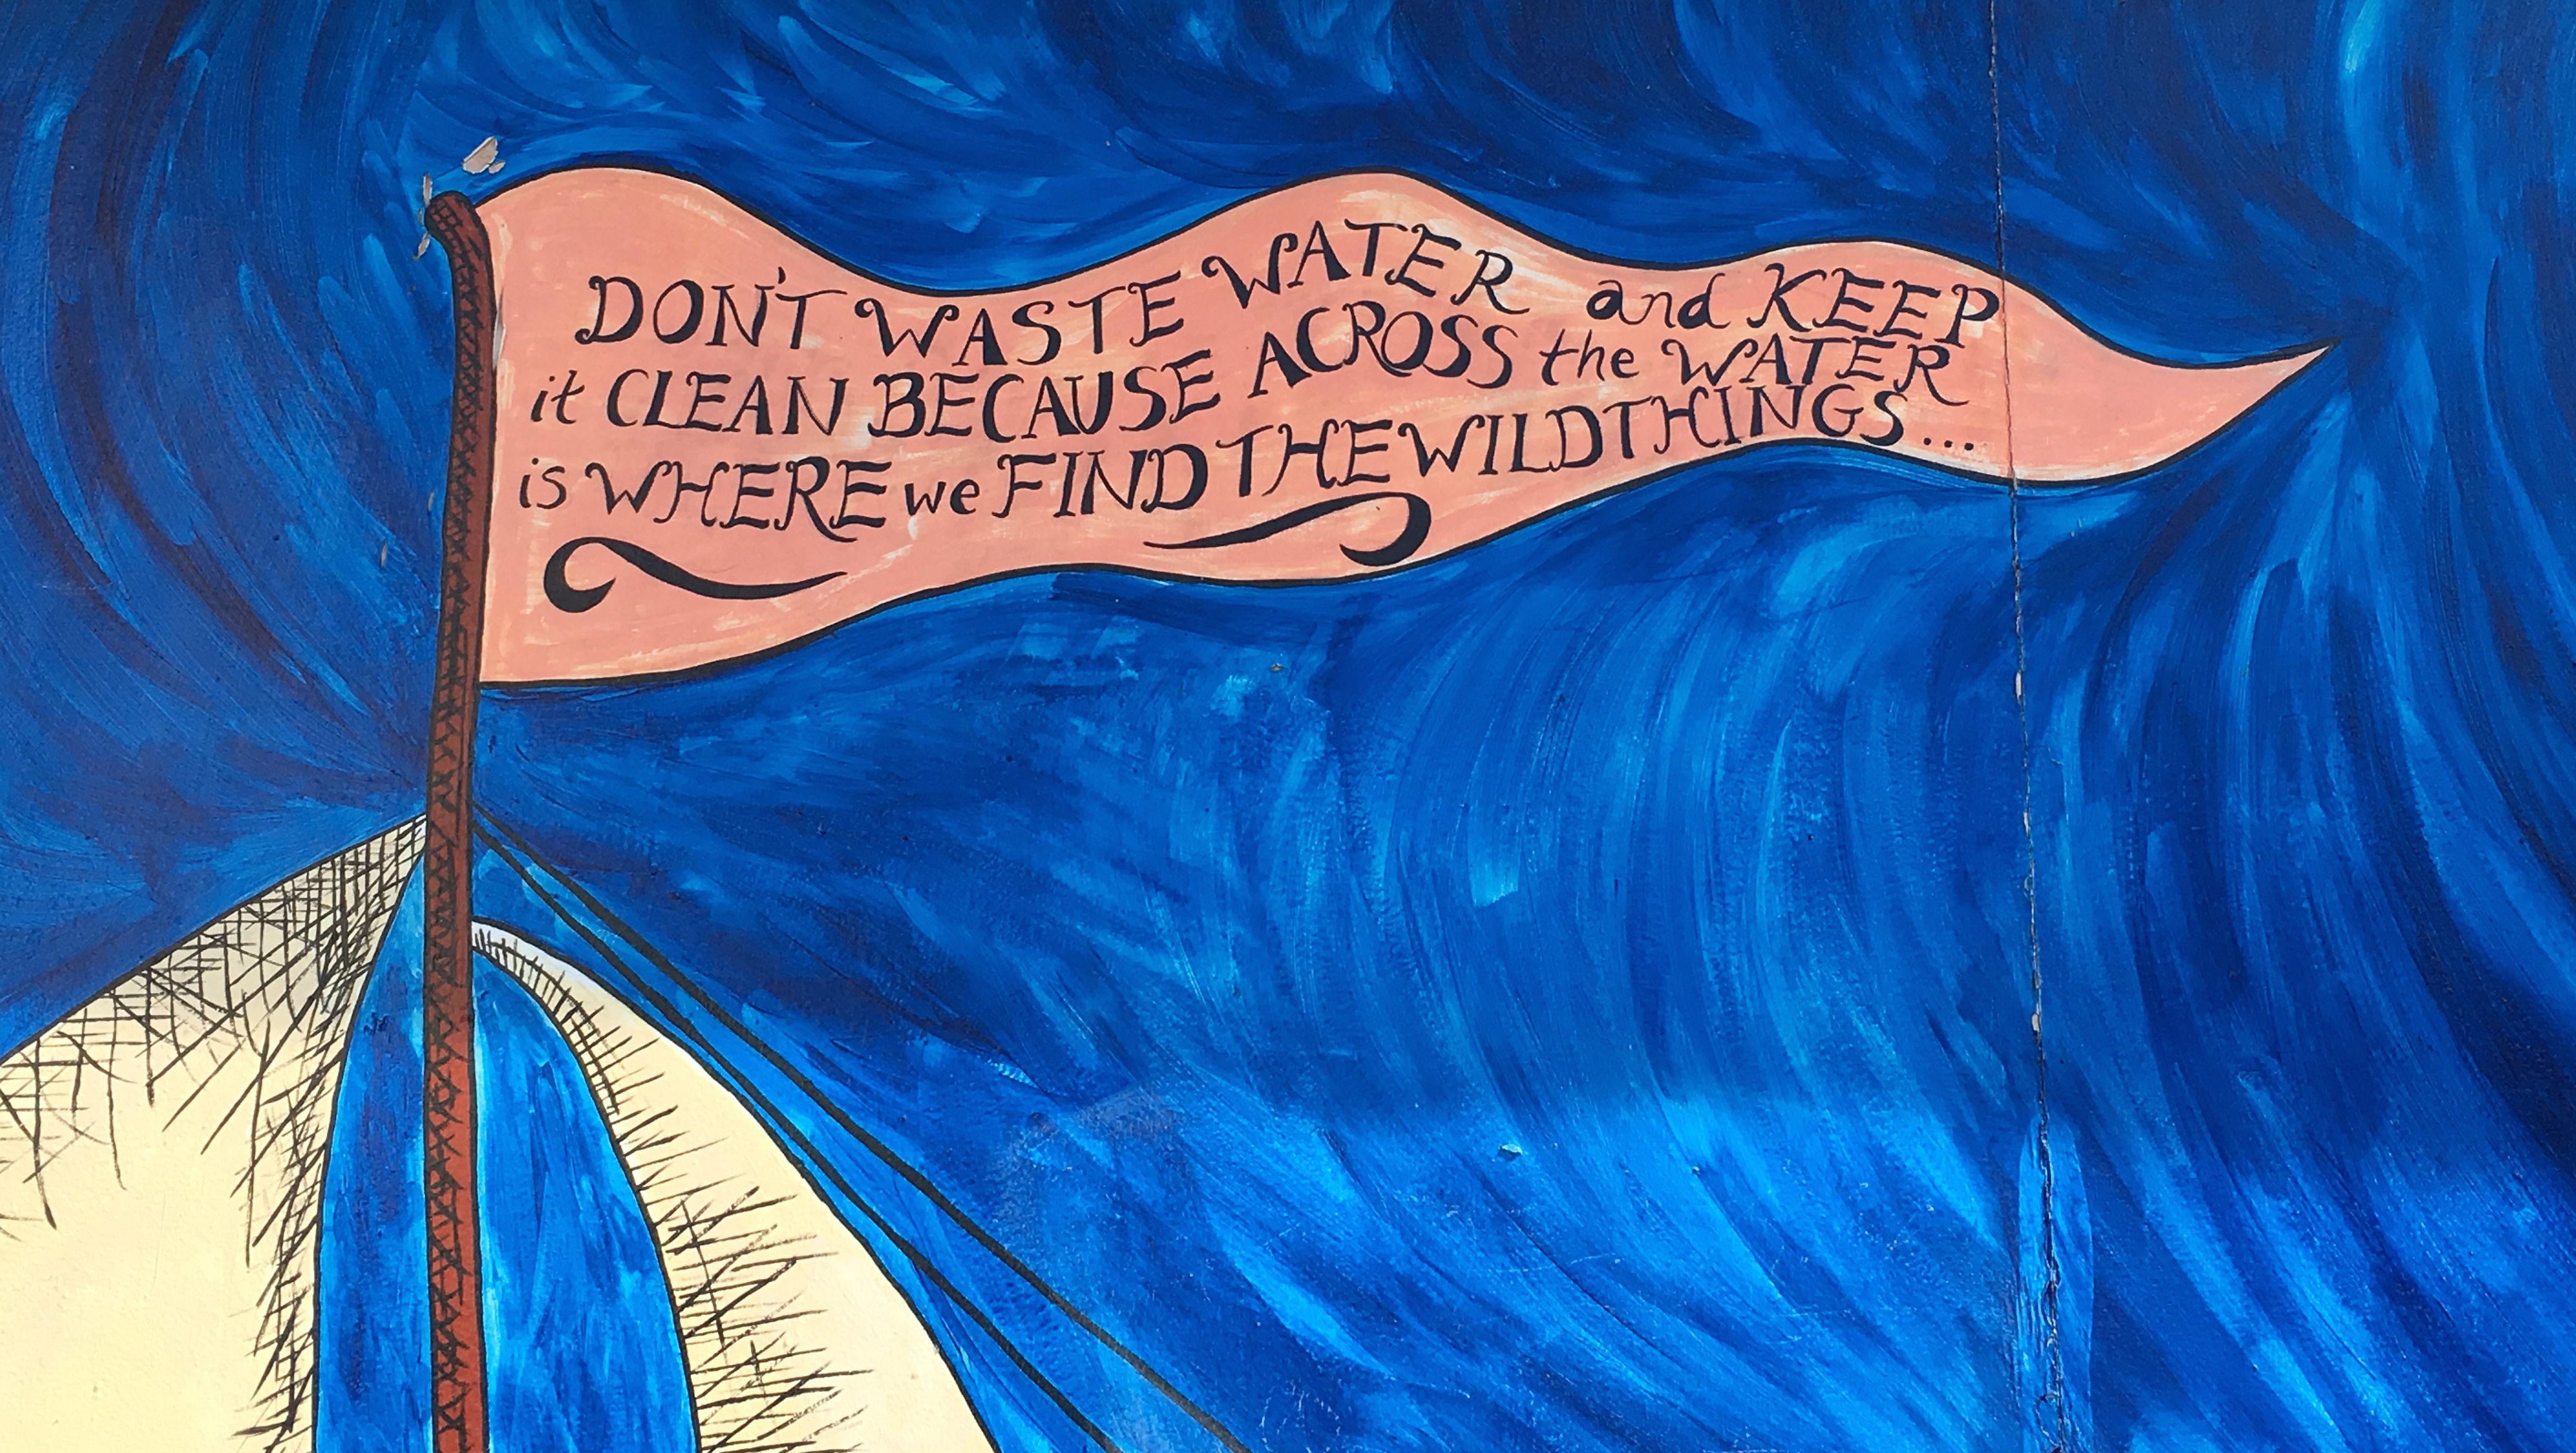 DON'T WASTE WATER and KEEP
it CLEAN BECAUSE ACROSS the WATER
is WHERE we FIND THE WILD THINGS...